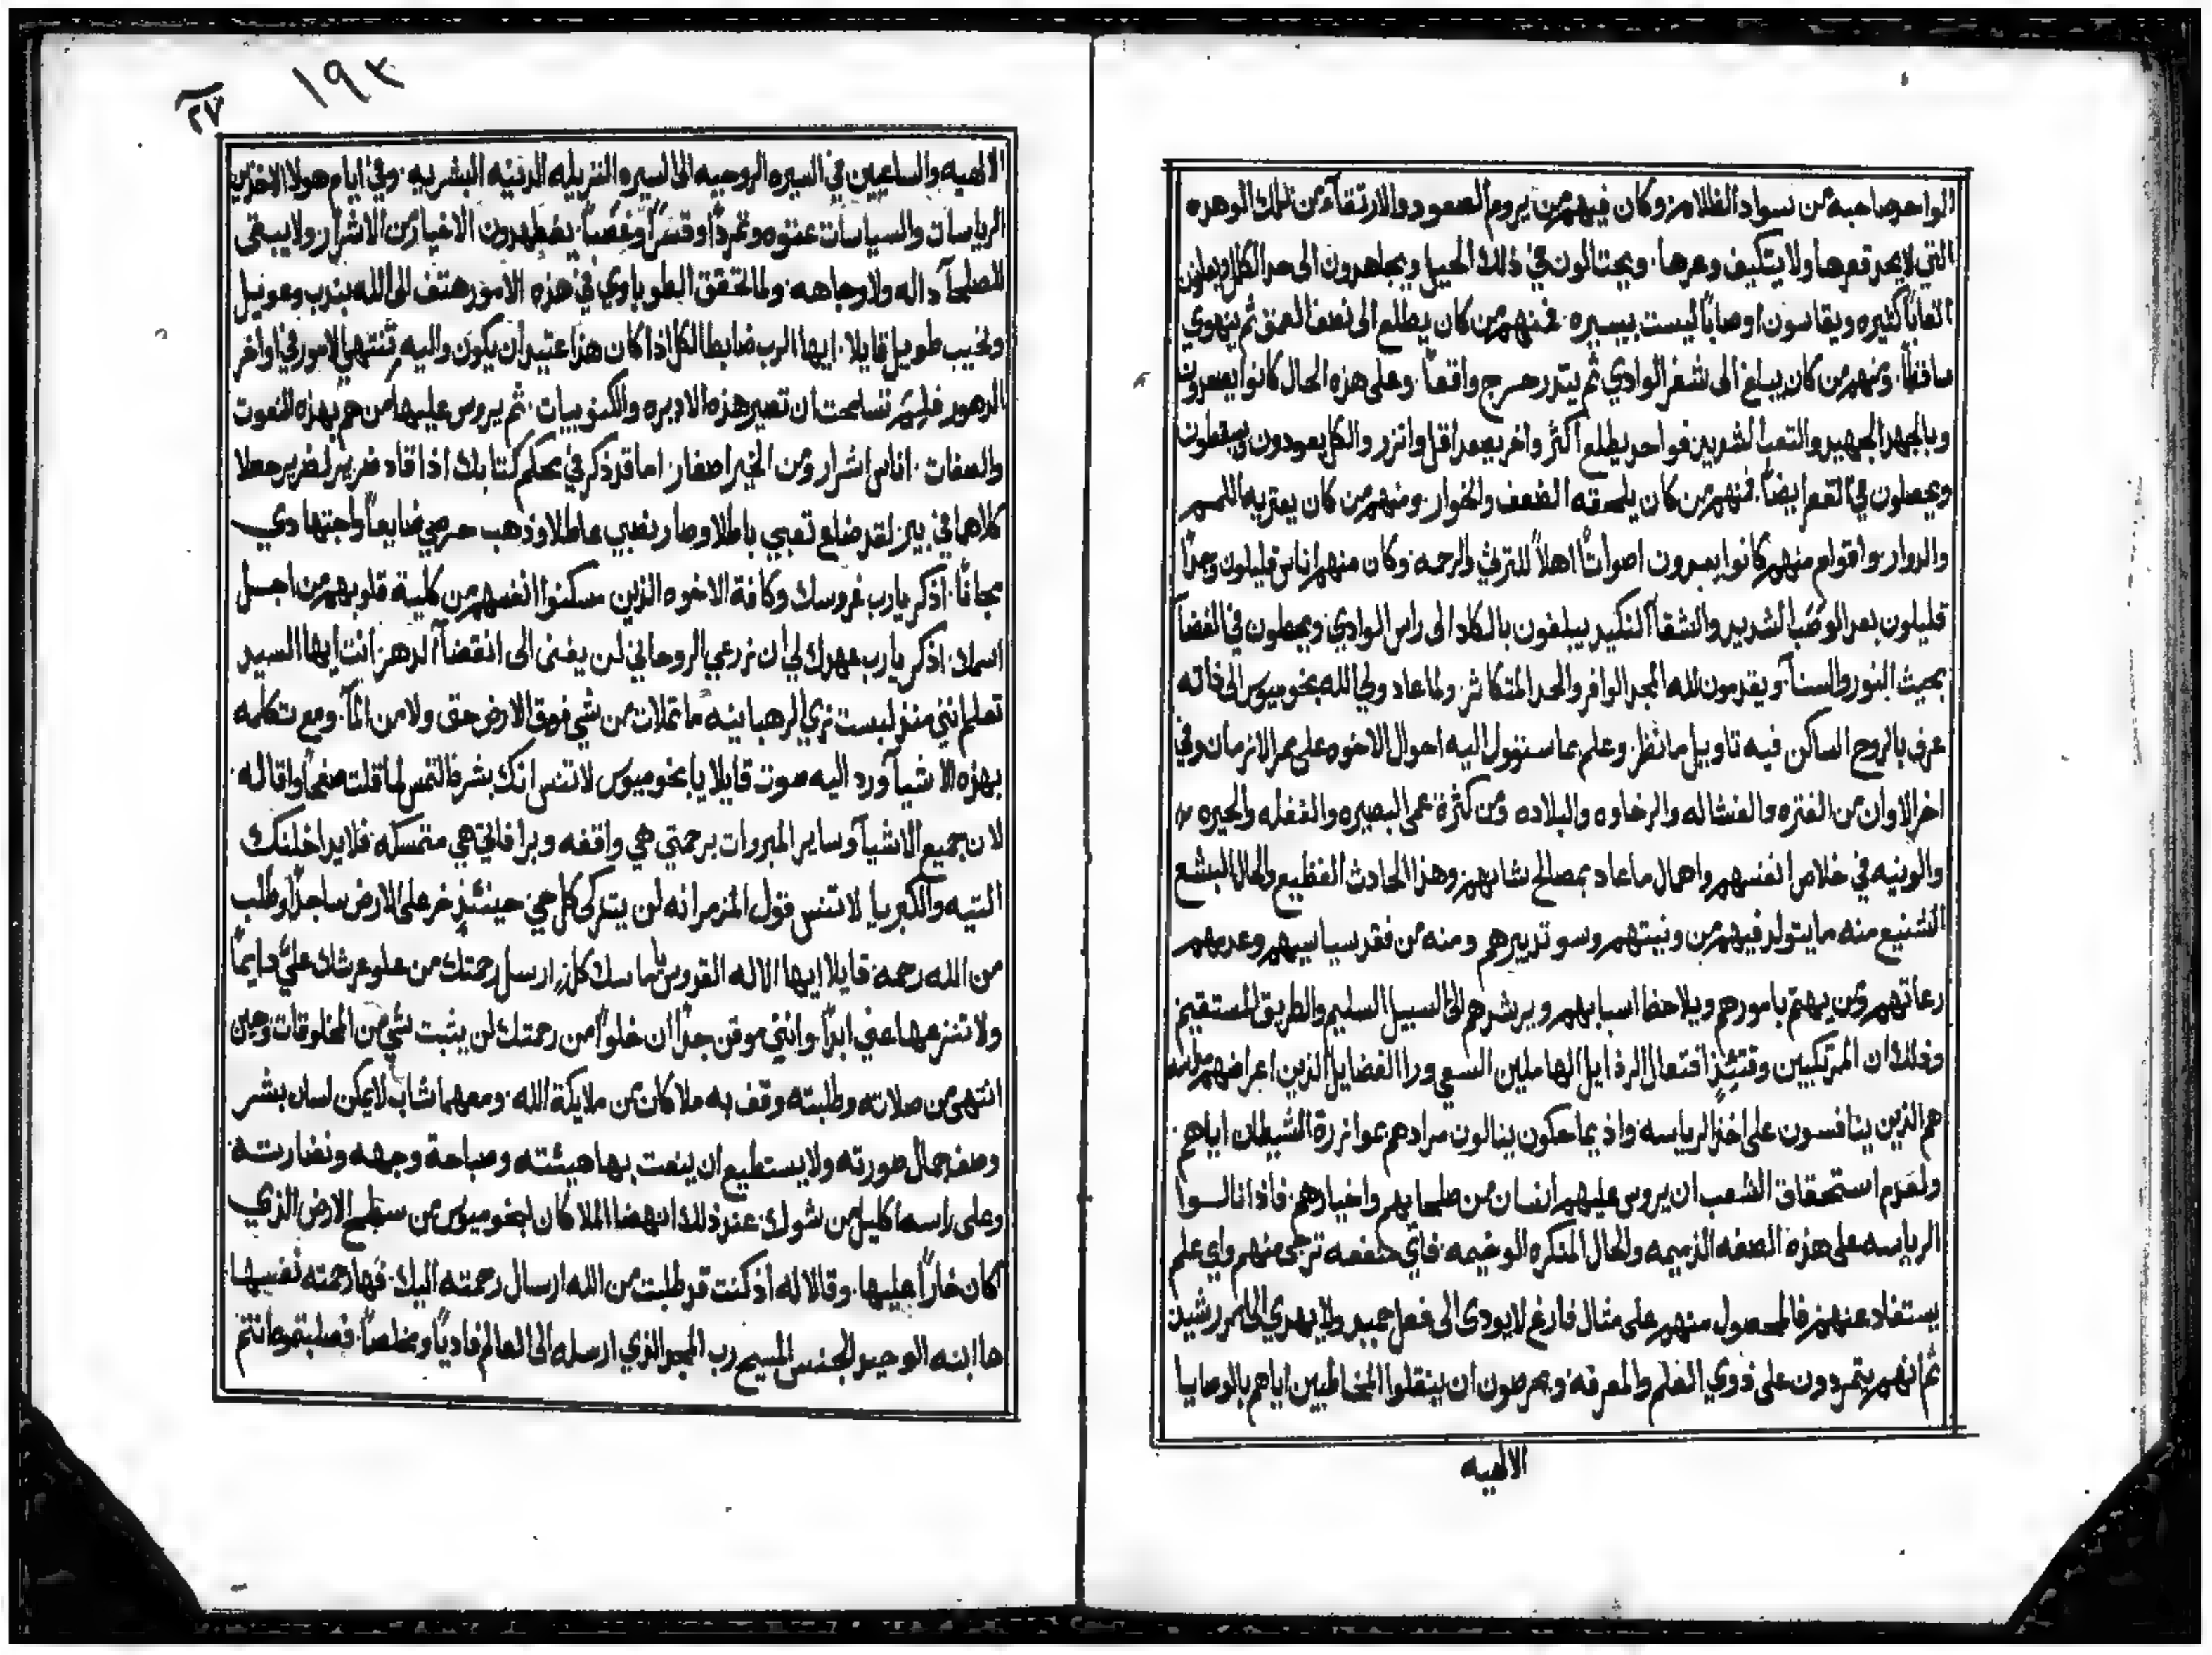 الواحد صاحبه من سواد الظلام. وكان فيهم من يروم الصعود والارتقآء من تلك الوهده
التي لا يحد قعرها ولا يتكيف وعرها. ويحتالون في ذلك الحيل ويجاهدون الى حد الكلل ويعانون
اتعاباً كثيره ويقاسون اوصاباً ليست بيسيره. فمنهم من كان يطلع الى نصف العمق ثم ينهوي
ساقطاً. ومنهم من كان يبلغ الى شفر الوادي ثم يتدحرج واقعاً. وعلى هذه الحال كانوا يصعدون
وبالجهد الجهيد والتعب الشديد فواحد يطلع اكثر واخر يصعد اقل وانزر والكل يعودون ويسقطون
ويحصلون في القعر ايضاً. فمنهم من كان يلحقه الضعف والخوار. ومنهم من كان يعتريه
والدوار. واقوام منهم كانوا يبدون اصواتاً اهلاً للترثي والرحمه. وكان منهم اناس قليلون وجداً
قليلون بعد الوصب الشديد والشقآ النكير يبلغون بالكاد الى راس الوادي ويحصلون في الفضآ
بحيث النور والسنآ. ويقدمون لله المجد الوافر والحمد المتكاثر. ولما عاد ولي الله بخوميوس الى ذاته
عرف بالروح الساكن فيه تاويل ما نظر. وعلم بما ستوول اليه احوال الاخوه على ممر الازمان وفي
اخر الاوان من الفتره والفشاله والرخاوه والبلاده ومن كثرة عمى البصيره والغفله والحيره
والونيه في خلاص انفسهم واهمال ما عاد بمصالح شانهم. وهذا الحادث الفظيع والحال البشع
الشنيع منه ما يتولد فيهم من ونيتهم وسو تدبيرهم ومنه من فقد سياسيهم وعدمهم
رعاتهم ومن يهتم بامورهم ويلاحظ اسبابهم ويرشدهم الى السبيل السليم والطريق المستقيم
وذلك ان المرتكبين وقتئذٍ افتعال الرذايل الهاملين السعي ورا الفضايل الذين اعراضهم
هم الذين يتنافسون على اخذ الرياسه. واذ يماحكون ينالون مرادهم بموازرة الشيطان اياهم.
ولعدم استحقاق الشعب ان يروس عليهم انسان من صلحايهم واخيارهم. فاذا نالوا
الرياسه على هذه الصفه الذميمه والحال المنكره الوخيمه. فاي منفعه ترجى منهم واي علم
يستفاد عنهم. فالمحصول منهم على مثال فارغ لا يودى الى فعل حميد ولا يهدي الى امر رشيد
ثم انهم يتمردون على ذوي العلم والمعرفه. ويحرصون ان ينقلوا المخاطبين اياهم بالوصايا
الالهيه
١٩٣
٢٧
الالهيه والساعيين في السيره الروحيه الى السيره النزيله الدنيه البشريه. وفي ايام هولا الاخذين
الرياسات والسياسات عتوه وتمرداً وقسراً وغصباً. يضطهدون الاخيار من الاشرار ولا يبقى
للصلحآ داله ولا وجاهه. ولما تحقق الطوباوي في هذه الامور هتف الى الله بندب وعويل
ونحيب طويل قايلا. ايها الرب ضابط الكل اذا كان هذا عتيد ان يكون واليه تنتهي الامور في اواخر
الدهور فلِمَ تسامحت ان تصير هذه الاديره والكنوبيات. ثم يروس عليها من هم بهذه النعوت
والصفات. اناس اشرار ومن الخير اصفار. اما قد ذكر في محكم كتابك اذا قاد ضرير لضرير حصلا
كلاهما في بير. لقد ضاع تعبي باطلا وصار نصبي عاطلا وذهب حرصي ضايعاً واجتهادي
مجاناً. اذكر يارب عروسك وكافة الاخوه الذين مسكنوا انفسهم من كلية قلوبهم من اجل
اسمك. اذكر يارب عهدك لي أن زرعي الروحاني لن يفنى الى انقضآ الدهر. انت ايها السيد
تعلم انني منذ لبست زي الرهبانيه ما تملات من شي فوق الارض حتى ولا من المآ. ومع تكلمه
بهذه الاشيآ ورد اليه صوت قايلا يا بخوميوس لا تنس انك بشر فالتمس لما قلت صفحاً واقاله.
لان جميع الاشيآ وساير المبروات برحمتي هي واقفه وبرافاتي هي متمسكه. فلا يداخلنك
التيه والكبريا لا تنس قول المزمر انه لن يتزكى كل حي. حينئذٍ خر على الارض ساجداً وطلب
من الله رحمه قايلا ايها الاله القدوس يا ماسك كلٍ ارسل رحمتك من علو عرشك عليّ دايماً
ولا تنزعها عني ابداً. وانني موقن جداً ان خلواً من رحمتك لن يثبت شي من المخلوقات. وحين
انتهى من صلاته وطلبته وقف به ملاكان من ملايكة الله. ومعهما شاب لا يمكن لسان بشر
وصف جمال صورته ولا يستطيع ان ينعت بها هيئته وصباحة وجهه ونضارته
وعلى راسه اكليل من شوك. عند ذلك انهضا الملاكان لبخوميوس من سطح الارض الذي
كان خاراً عليها. وقالا له اذ كنت قد طلبت من الله ارسال رحمته اليك. فها رحمته نفسها
ها ابنه الوحيد الجنس المسيح رب المجد الذي ارسله الى العالم فادياً ومخلصاً. فصلبتموه انتم